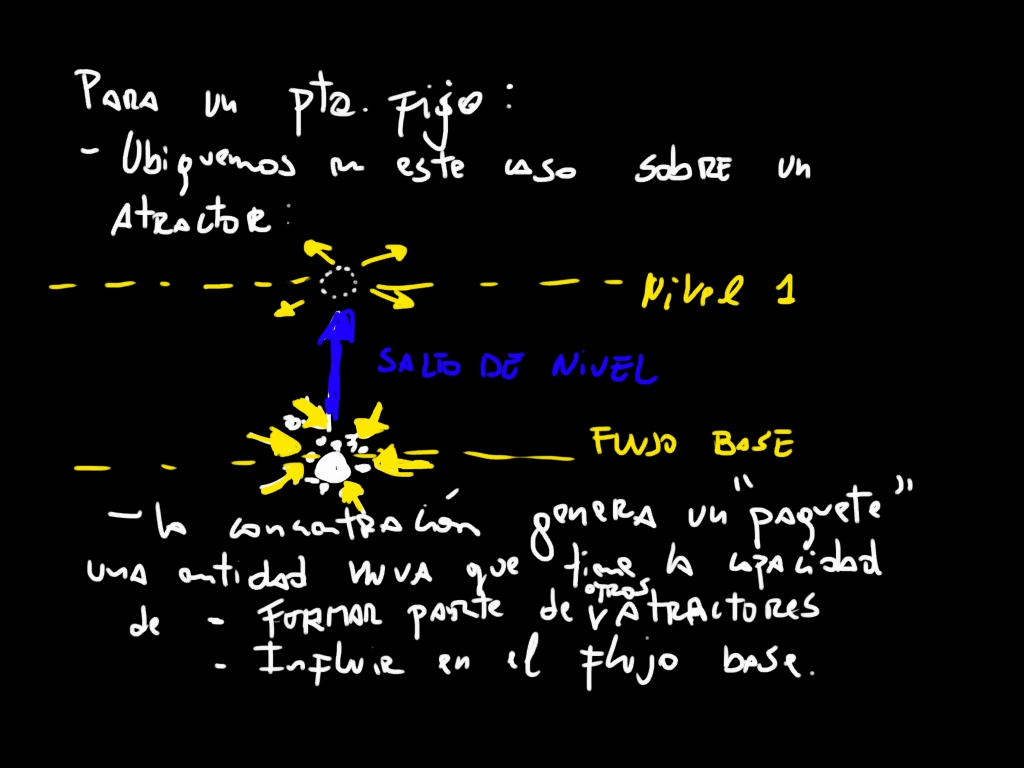 Para un pto. fijo:
- Ubiquemos en este caso sobre un
atractor:
Nivel 1
SALTO DE NIVEL
FLUJO BASE
- la concentración genera un "paquete"
una entidad nueva que tiene la capacidad
otros
de - Formar parte de V atractores
- Influir en el flujo base.